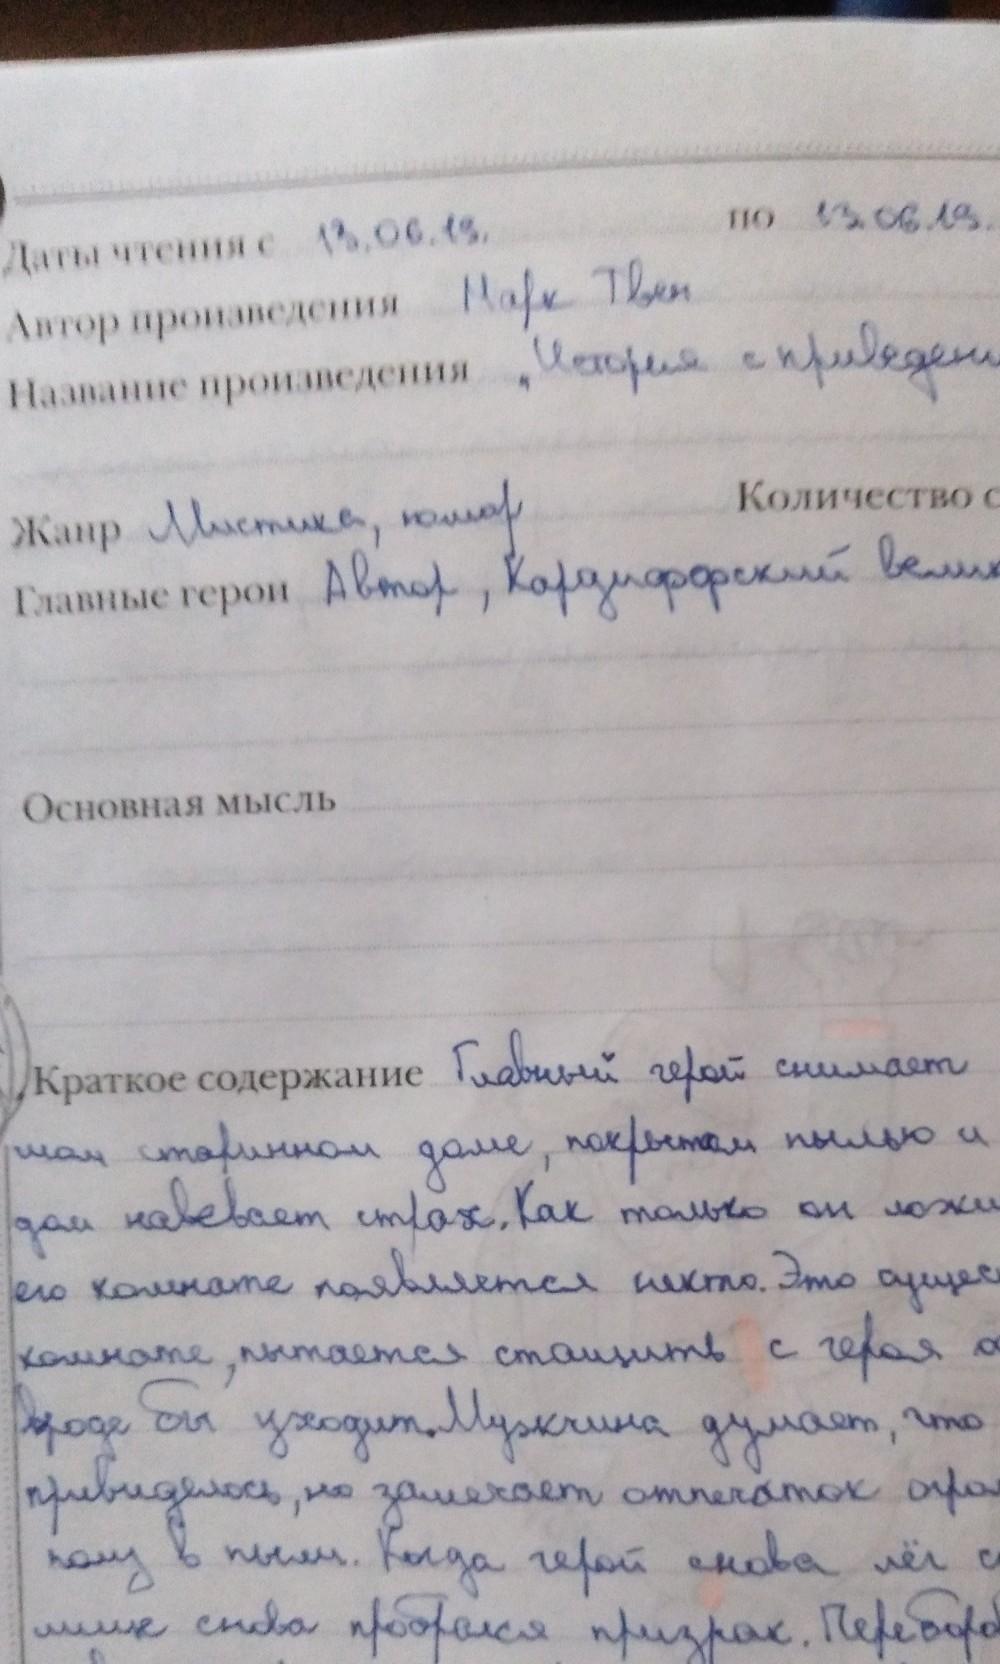 Даты чтения с 13.06.19. по 13.06.19.
Автор произведения Марк Твен
Название произведения „История с приведени
Жанр Мистика, юмор Количество с
Главные герои Автор, Кардиффский велик
Основная мысль
Краткое содержание Главный герой снимает
шом старинном доме, покрытом пылью и
дом навевает страх. Как только он ложи
его комнате появляется некто. Это сущес
комнате, пытается стащить с героя о
вроде бы уходит. Мужчина думает, что
привиделось, но замечает отпечаток огром
полу в пыли. Когда герой снова лёг с
снова пробрался призрак. Перебор